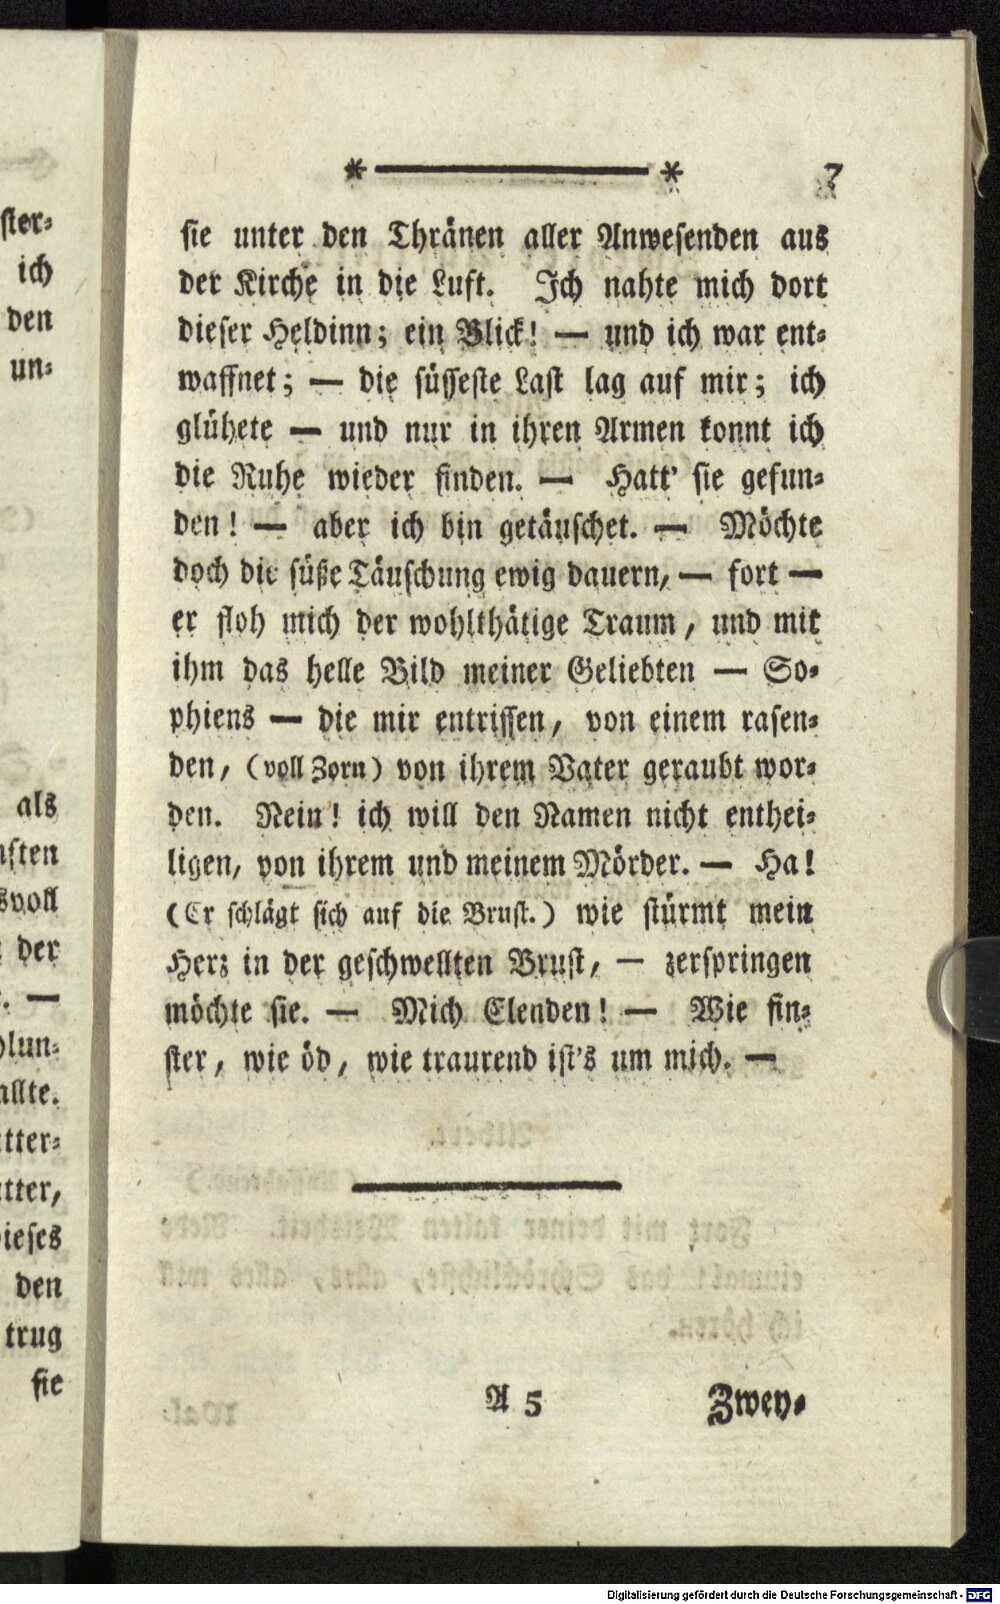 ster-
ich
den
un-
als
nsten
svoll
der
. —
hlun-
allte.
tter-
tter,
dieses
den
trug
sie
* ——— * 7
sie unter den Thränen aller Anwesenden aus
der Kirche in die Luft. Ich nahte mich dort
dieser Heldinn; ein Blick! — und ich war ent-
waffnet; — die süsseste Last lag auf mir; ich
glühete — und nur in ihren Armen konnt ich
die Ruhe wieder finden. — Hatt' sie gefun-
den! — aber ich bin getäuschet. — Möchte
doch die süße Täuschung ewig dauern, — fort —
er floh mich der wohlthätige Traum, und mit
ihm das helle Bild meiner Geliebten — So-
phiens — die mir entrissen, von einem rasen-
den, (voll Zorn) von ihrem Vater geraubt wor-
den. Nein! ich will den Namen nicht enthei-
ligen, von ihrem und meinem Mörder. — Ha!
(Er schlägt sich auf die Brust.) wie stürmt mein
Herz in der geschwellten Brust, — zerspringen
möchte sie. — Mich Elenden! — Wie fin-
ster, wie öd, wie traurend ist's um mich. —
A 5 Zwey-
Digitalisierung gefördert durch die Deutsche Forschungsgemeinschaft - DFG